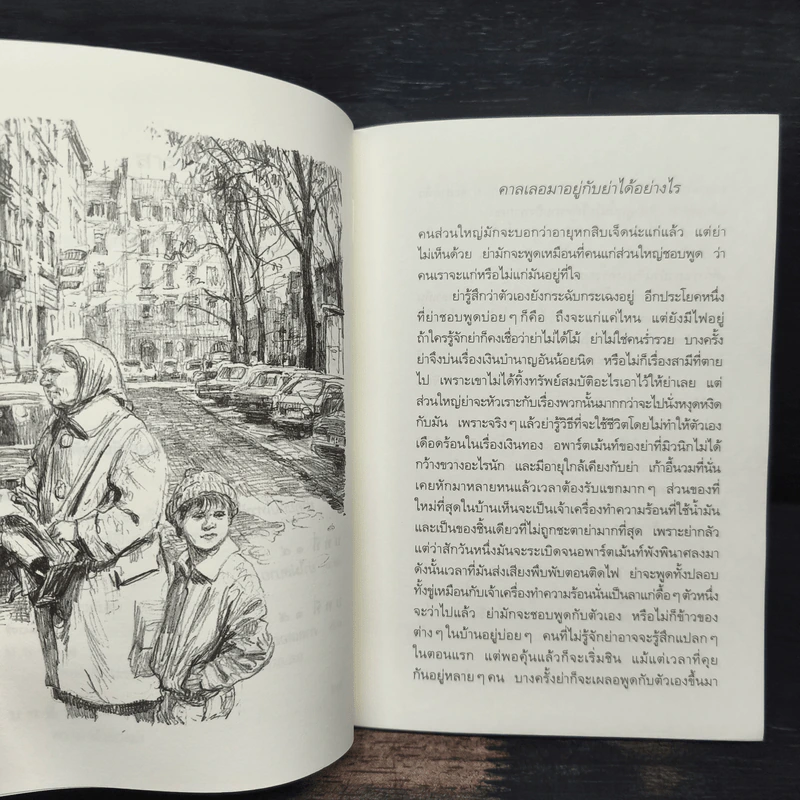 คาลเลอมาอยู่กับย่าได้อย่างไร
คนส่วนใหญ่มักจะบอกว่าอายุหกสิบเจ็ดน่ะแก่แล้ว แต่ย่า
ไม่เห็นด้วย ย่ามักจะพูดเหมือนที่คนแก่ส่วนใหญ่ชอบพูด ว่า
คนเราจะแก่หรือไม่แก่มันอยู่ที่ใจ
ย่ารู้สึกว่าตัวเองยังกระฉับกระเฉงอยู่ อีกประโยคหนึ่ง
ที่ย่าชอบพูดบ่อยๆ ก็คือ ถึงจะแก่แค่ไหน แต่ยังมีไฟอยู่
ถ้าใครรู้จักย่าก็คงเชื่อว่าย่าไม่ได้โม้ ย่าไม่ใช่คนร่ำรวย บางครั้ง
ย่าจึงบ่นเรื่องเงินบำนาญอันน้อยนิด หรือไม่ก็เรื่องสามีที่ตาย
ไป เพราะเขาไม่ได้ทิ้งทรัพย์สมบัติอะไรเอาไว้ให้ย่าเลย แต่
ส่วนใหญ่ย่าจะหัวเราะกับเรื่องพวกนั้นมากกว่าจะไปนั่งหงุดหงิด
กับมัน เพราะจริงๆ แล้วย่ารู้วิธีที่จะใช้ชีวิตโดยไม่ทำให้ตัวเอง
เดือดร้อนในเรื่องเงินทอง อพาร์ตเม้นท์ของย่าที่มิวนิกไม่ได้
กว้างขวางอะไรนัก และมีอายุใกล้เคียงกับย่า เก้าอี้นวมที่นั่น
เคยหักมาหลายหนแล้วเวลาต้องรับแขกมากๆ ส่วนของที่
ใหม่ที่สุดในบ้านเห็นจะเป็นเจ้าเครื่องทำความร้อนที่ใช้น้ำมัน
และเป็นของชิ้นเดียวที่ไม่ถูกชะตาย่ามากที่สุด เพราะย่ากลัว
แต่ว่าสักวันหนึ่งมันจะระเบิดจนอพาร์ตเม้นท์พังพินาศลงมา
ดังนั้นเวลาที่มันส่งเสียงพึบพับตอนติดไฟ ย่าจะพูดทั้งปลอบ
ทั้งขู่เหมือนกับเจ้าเครื่องทำความร้อนนั่นเป็นลาแก่ดื้อๆ ตัวหนึ่ง
จะว่าไปแล้ว ย่ามักจะชอบพูดกับตัวเอง หรือไม่ก็ข้าวของ
ต่างๆ ในบ้านอยู่บ่อยๆ คนที่ไม่รู้จักย่าอาจจะรู้สึกแปลกๆ
ในตอนแรก แต่พอคุ้นแล้วก็จะเริ่มชิน แม้แต่เวลาที่คุย
กันอยู่หลายๆ คน บางครั้งย่าก็จะเผลอพูดกับตัวเองขึ้นมา